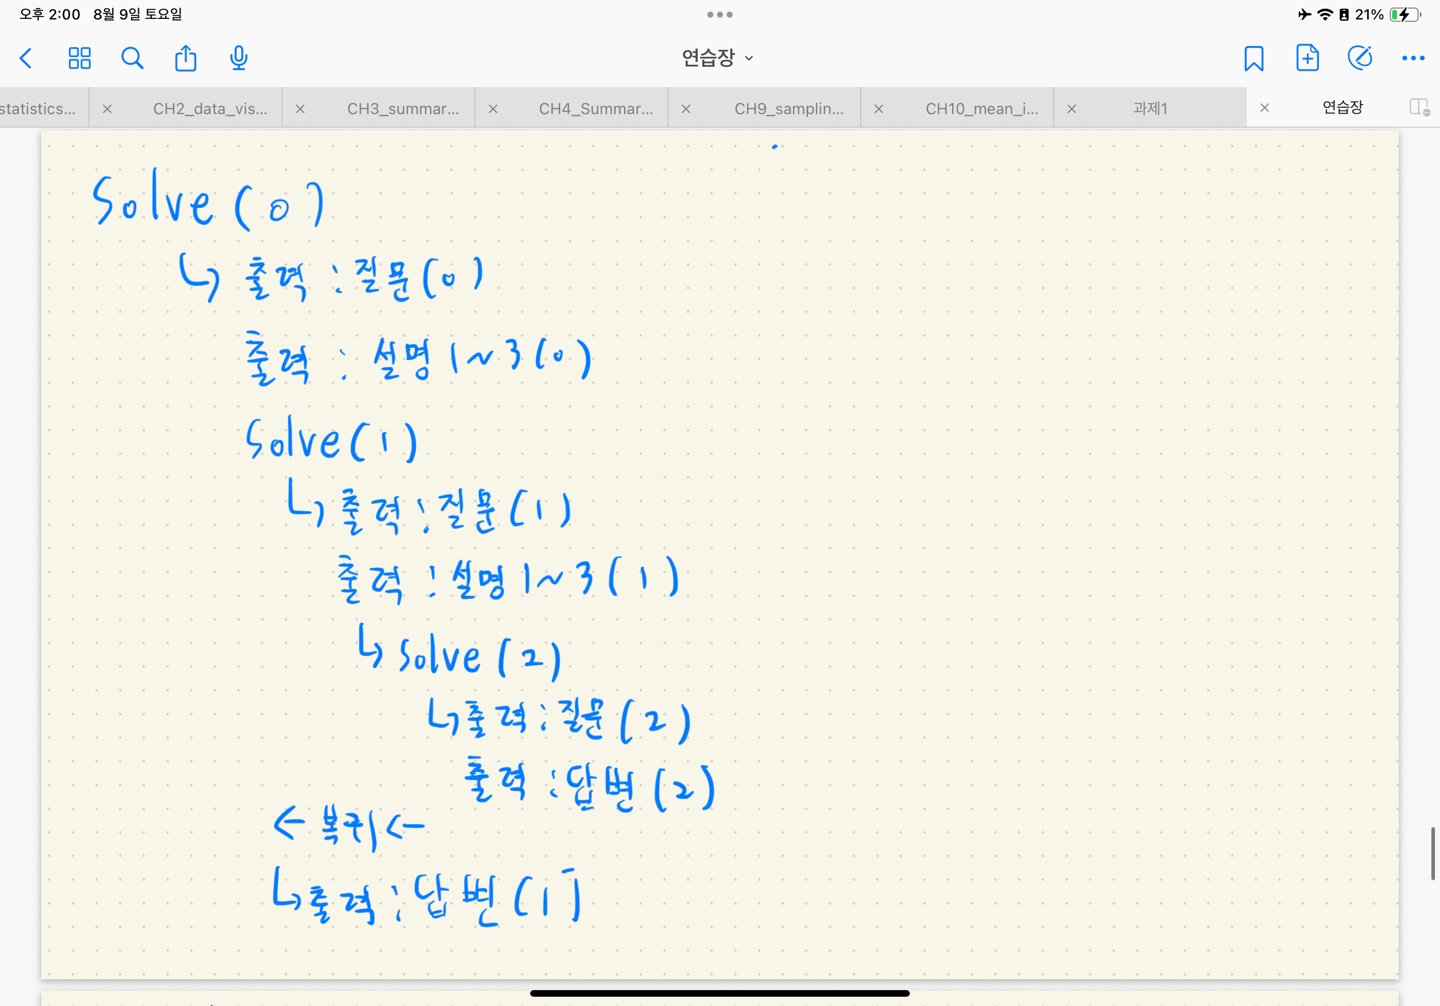 오후 2:00 8월 9일 토요일
21%
연습장
statistics...
CH2_data_vis...
CH3_summar...
CH4_Summar...
CH9_samplin...
CH10_mean_i...
과제1
연습장
Solve(0)
↳ 출력 : 질문(0)
출력 : 설명 1~3(0)
Solve(1)
↳ 출력 : 질문(1)
출력 : 설명 1~3(1)
↳ Solve(2)
↳ 출력 : 질문(2)
출력 : 답변(2)
← 복귀 ←
↳ 출력 : 답변(1)